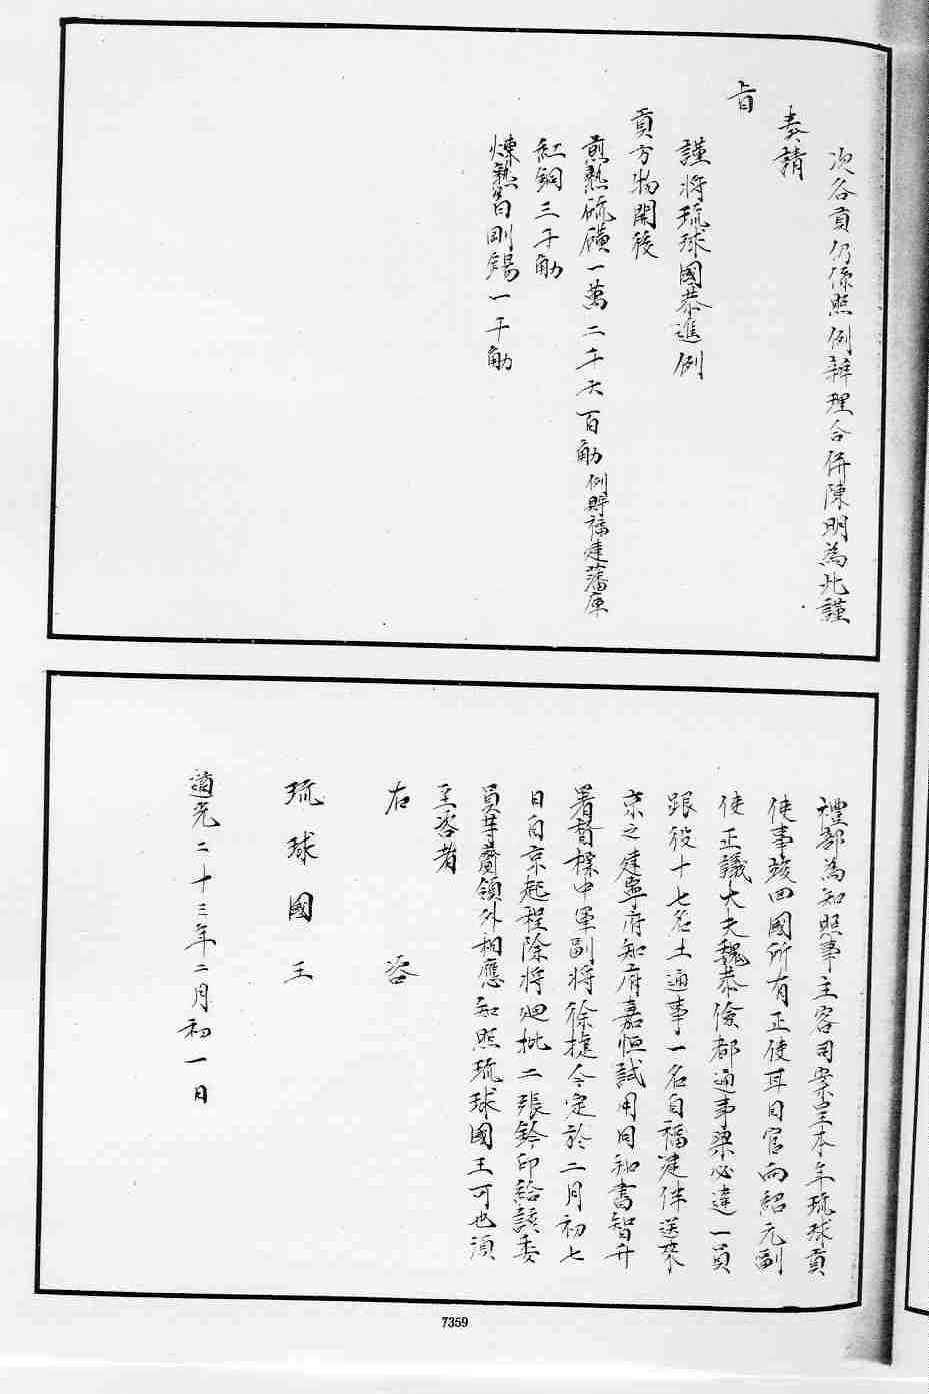 次各貢仍係照例辦理合併陳明為此謹
奏請
旨
謹將琉球國恭進例
貢方物開後
煎熟硫磺一萬二千六百觔例貯福建藩庫
紅銅三千觔
煉熟白剛錫一千觔
禮部為知照事主客司案呈本年琉球貢
使事竣回國所有正使耳目官向紹元副
使正議大夫魏恭儉都通事梁必達一員
跟役十七名土通事一名自福建伴送來
京之建寧府知府嘉恒試用同知書智升
署督標中軍副將徐捷今定於二月初七
日自京起程除將迴批二張鈐印給該委
員等齎領外相應知照琉球國王可也須
至咨者
右咨
琉球國王
道光二十三年二月初一日
7359